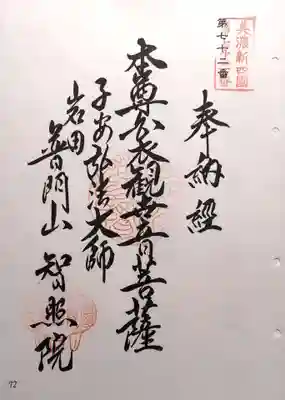 美濃新四国
第七十二番
奉納経
本尊公衣観世音菩薩
子安弘法大師
岩田
普門山 智照院
72